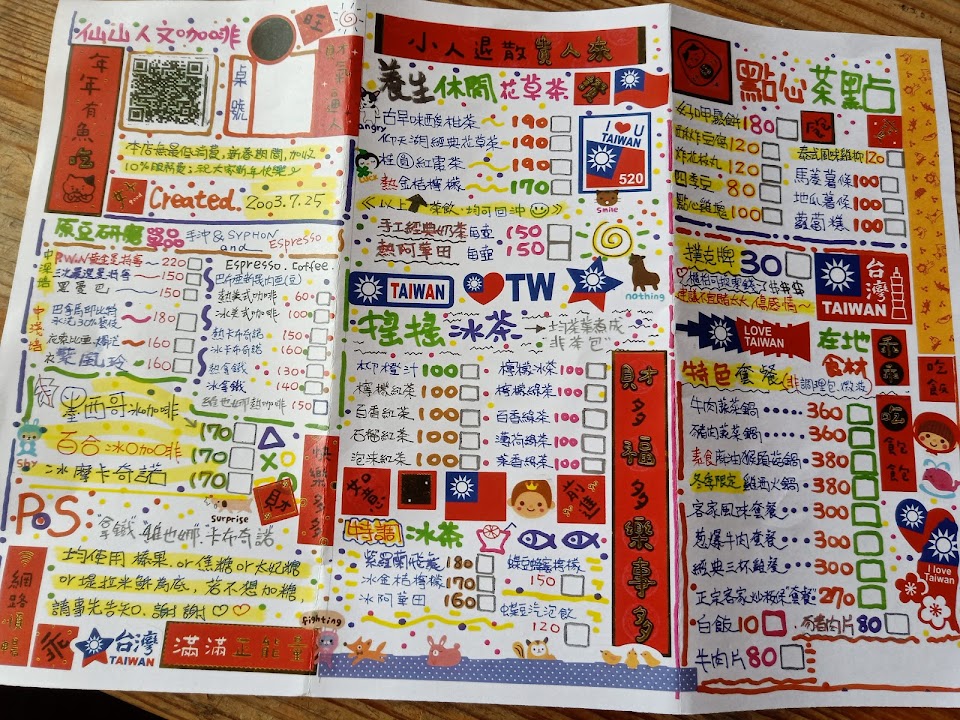 仙山人文咖啡
旺
年年有魚
桌號
本店無最低消費,新春期間,加收
10%服務費;祝大家新年快樂
Created. 2003.7.25
原豆研磨單品 手沖 & SYPHON
and Espresso
中深焙
220
150
150
中淺焙
180
花索比亞
160
衣索藍風玲 160
Espresso.coffee.
熱美式咖啡 60
冰美式咖啡 100
熱卡布奇諾 150
冰卡布奇諾 160
熱拿鐵 130
冰拿鐵 140
維也娜熱咖啡 150
墨西哥冰咖啡 170
百合冰咖啡 170
冰摩卡奇諾 170
shy
surprise
財
快樂多多
P.S:
拿鐵 維也娜 卡布奇諾
均使用榛果.or焦糖.or太妃糖
or堤拉米穌為底,若不想加糖,
請事先告知.謝謝
網路
乖
台灣
TAIWAN
滿滿正能量
小人退散貴人來
養生休閒花草茶
angry
古早味酸柑茶 190
仰天湖經典花草茶 190
桂圓紅棗茶 190
熱金桔檸檬 170
以上茶飲.均可回沖
I ♥ U
TAIWAN
520
smile
手工經典奶茶 自壺 150
熱阿華田 自壺 150
TAIWAN
TW
TAIWAN
nothing
搖搖冰茶 → 均茶葉煮成
非茶包
柳橙汁 100
檸檬冰茶 100
檸檬紅茶 100
檸檬綠茶 100
百香紅茶 100
百香綠茶 100
石榴紅茶 100
薄荷綠茶 100
泡沫紅茶 100
茉香綠茶 100
如意
前進
財多福多多樂事多多
特調冰茶
紫羅蘭飛燕 180
冰金桔檸檬 170
冰阿華田 160
綠豆蜂蜜檸檬
150
蝶豆汽泡飲
120
fighting
點心茶點
180
120
炸花枝丸 120
四季豆 80
點心雞塊 100
泰式風味雞柳 120
馬菱薯條 100
地瓜薯條 100
蘿蔔糕 100
撲克牌 30
台灣
TAIWAN
LOVE
TAIWAN
在地
食材
乖乖
吃飯
吃飽飽
特色套餐 (非調理包.微波)
牛肉蔬菜鍋 360
豬肉蔬菜鍋 360
素食麻油猴頭菇鍋 380
冬季限定 雞酒火鍋 380
客家風味套餐 300
蔥爆牛肉套餐 300
經典三杯雞套餐 300
正宗客家炒粄條套餐 270
白飯 10
豬肉片 80
牛肉片 80
I love
Taiwan